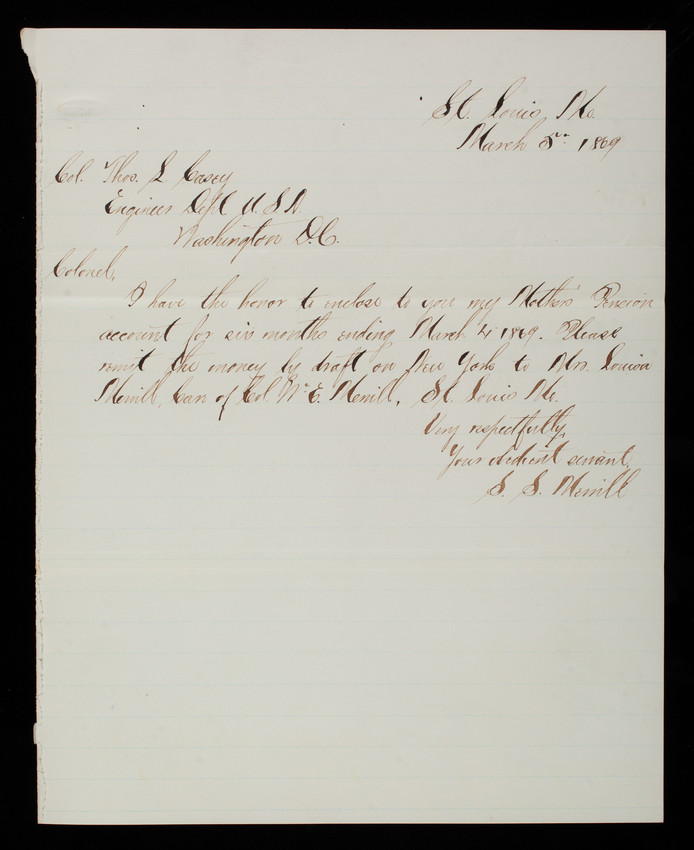 St. Louis, Mo.
March 1869
Col. Thos. L Casey
Engineer Dept U.S.A.
Washington D.C.
Colonel,
I have the honor to enclose to you my Mothers' Pension
account for six months ending March 4, 1869. Please
remit the money by draft on New York to Mrs. Louisa
Merrill, Care of Col. Wm E. Merrill, St. Louis Mo.
Very respectfully,
Your obedient servant,
S. S. Merrill